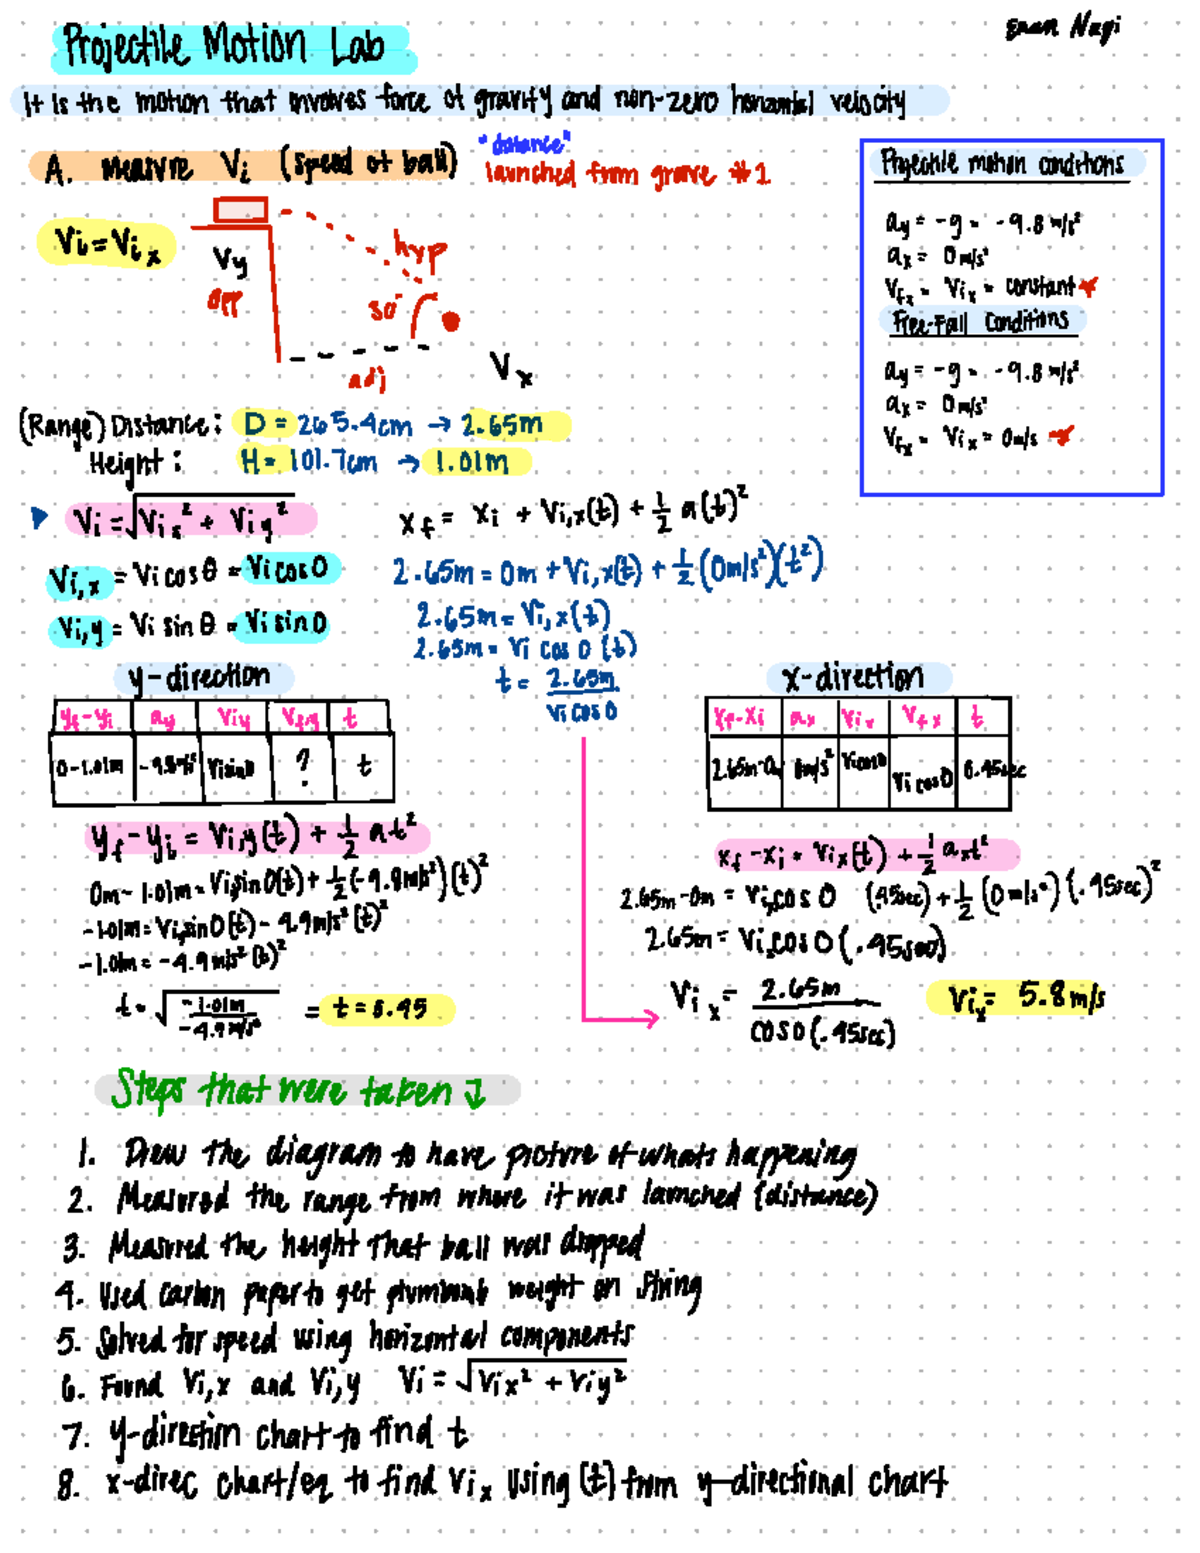 Projectile Motion Lab
It is the motion that involves force of gravity and non-zero horizontal velocity
A. Measure Vi (speed of ball)
"distance"
launched from groove #1
Vi = Vi x
Vy
opp
hyp
adj
Vx
Projectile motion conditions
ay = -g = -9.8 m/s²
ax = 0 m/s²
Vfx = Vix = constant
Free-Fall Conditions
ay = -g = -9.8 m/s²
ax = 0 m/s²
Vfx = Vix = 0 m/s
(Range) Distance: D = 265.4cm → 2.65m
Height: H = 101.7cm → 1.01m
Vi = √Vix² + Viy²
Vi,x = Vi cos θ = Vi cos 0
Vi,y = Vi sin θ = Vi sin 0
xf = xi + Vi,x(t) + 1/2 a(t)²
2.65m = 0m + Vi,x(t) + 1/2 (0m/s²)(t²)
2.65m = Vi,x(t)
2.65m = Vi cos 0 (t)
t = 2.65m / Vi cos 0
y-direction
yf-yi ay Viy Vf,y t
0-1.01m -9.8m/s² Vi sin 0 ? t
yf - yi = Vi,y(t) + 1/2 at²
0m - 1.01m = Vi sin 0(t) + 1/2(-9.8m/s²)(t)²
-1.01m = Vi sin 0(t) - 4.9m/s²(t)²
-1.01m = -4.9m/s²(t)²
t = √-1.01m / -4.9m/s² = t = 0.45
x-direction
xf-xi ax Vix Vfx t
2.65m-0m 0m/s² Vi cos 0 Vi cos 0 0.45sec
xf - xi = Vix(t) + 1/2 axt²
2.65m-0m = Vi cos 0 (.45sec) + 1/2 (0m/s²)(.45sec)²
2.65m = Vi cos 0 (.45sec)
Vix = 2.65m / cos 0 (.45sec)
Vix = 5.8 m/s
Steps that were taken ↓
1. Drew the diagram to have picture of whats happening
2. Measured the range from where it was launched (distance)
3. Measured the height that ball was dropped
4. Used carbon paper to get weight on string
5. Solved for speed using horizontal components
6. Found Vi,x and Vi,y Vi = √Vix² + Viy²
7. y-direction chart to find t
8. x-direc chart/eq to find Vix using (t) from y-directional chart